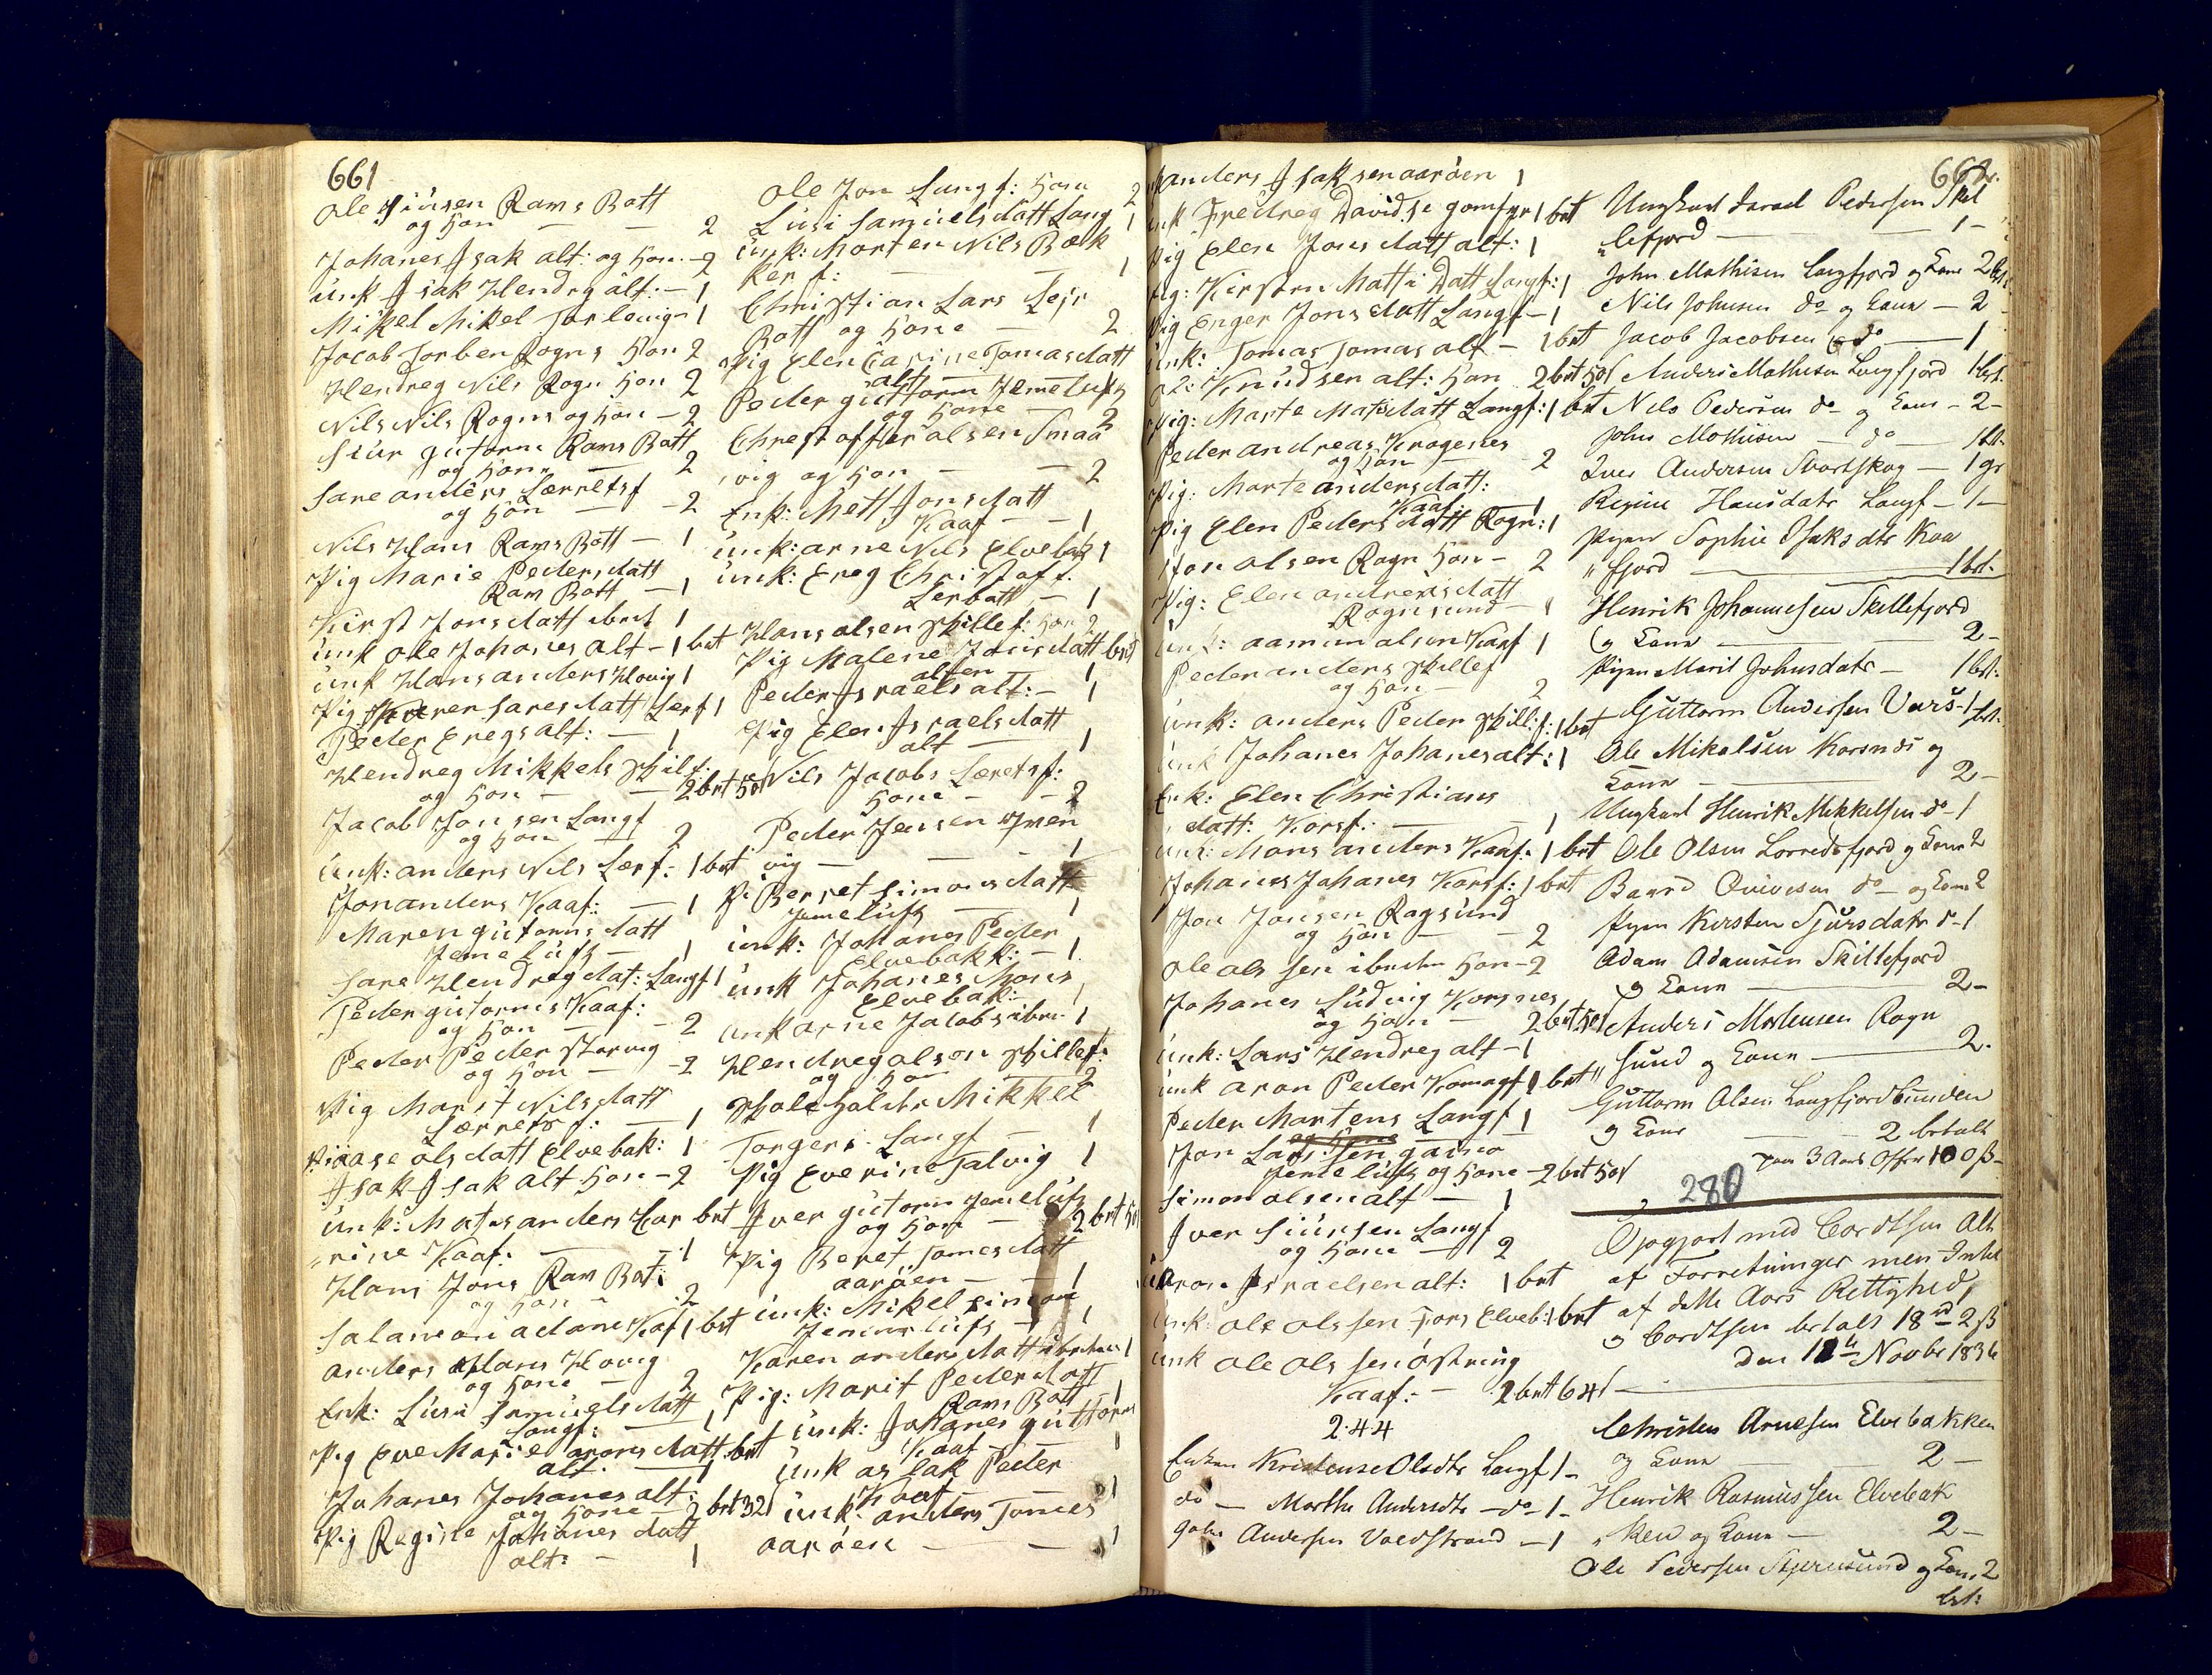 661
Ole Siúsen Rams Bott
og Hon — — 2
Johanes Isak alt: og Hon - 2
únk Isak Hendrg alt: - 1
Mikel Mikel Torlovig - 1
Jacob Torben Rogns Hon 2
Hendreg Nils Rogn Hon 2
Nils Nils Rogns og Hon - 2
Siúr gútorm Rams Bott
og Hone — 2
Sare anders Lærretsf
og Hon — - 2
Nils Hans Rams Bott — 1
Pig Marie Peders datt
Ram Bott — 1
Kirst Jons datt ibm 1
únk Ole Johanes Alt - 1 bet
únk Hans anders Hovig 1
Pig Karen Sares datt Lerf 1
Peder Eregs alt: — 1
Hendreg Mikkels Skilf:
og Hon — — 2 brt 50
Jacob Jonsen Langf
og Hon 2
únk: anders Nils Lerf: 1 bet
Jon anders Kaaf: — 1
Maren gútorms datt
Jemelúft — 1
Sare Hendreg dat: Langf 1
Peder gútorms Kaaf:
og Hon — - 2
Peder Peder Storvig
og Hon — - 2
Pig Marit Nils datt
Lærretsf: — 1
Pi aase ols datt Elvebak: 1
Isak Isak alt Hon - 2
únk: Mates anders Kar bet
rine Kaaf: — — 1
Hans Jons Ram Bot:
og Hon — 2
Salamon adam Kaf 1 bet
anders Hans Hovig
og Hone — 2
Enk: Lúsi Samúels datt
Langf: — 1
Pig Eve Marie arons datt bet
alt: — 1
Johanes Johanes alt:
og Hone — 2 bet 32
Pig Regine Johanes datt
alt: — 1
Ole Jon Langf: Hon 2
Lúsi Samúels datt Lang 1
únk: Morten Nils Bæk
ker f: — — 1
Christian Lars Lejr
Bott og Hone — 2
Pig Elen Carine Tomas datt
alt —
Peder gúttorm Jemelúft
og Hone — 2
Christoffer alsen Smaa
vig og Hon — — 2
Enk: Mett Jons datt
Kaaf — — 1
únk: arne Nils Elvebak 1
únk: Ereg Christoff.
Lerbott — 1
Hans olsen Skillef: Hon 2
Pig Malene Jons datt bet
alten 1
Peder Israels alt: — 1
Pig Elen Israels datt
alt — 1
Nils Jacobs Læretsf:
Hone — - 2
Peder Jensen qven
vig — — — 1
Pi Berret Simons datt
Jemelúft — 1
únk: Johanes Peder
Elvebakk: — 1
únk Johanes Mons
Elvebak: 1
únk arne Jacobs ibm 1
Hendreg olson Skillef:
og Ho — 2
Skoleholder Mikkel
Torgers. Langf — 1
Pig Everine Talvig 1
Iver gútorm Jemelúft
og Hon — 2 bet 50
Pig Beret Tomes datt
aaröen — — 1
únk: Mikel Simon
Jemelúft — 1
Karen anders datt ibmhm 1
Pig: Marit Peder datt
Rams Bott 1
únk: Johanes gúttorm
Kaaf — — 1
únk aslak Peder
Kaaf — 1
únk: anders Tomes
aaröen — — 1
662
anders Isaksen aaröen 1
únk Fredreg David.se gomfyr 1 bet
Pig Elen Jons datt alt: 1
Pig: Kirsten Matti Datt Langf: 1
Pig Enger Jons datt Langf - 1
únk: Tomas Tomas alt — 1 bet
Ol: Knúdsen alt: Hon 2 bet 50
Pig: Marte Mats datt Langf: 1 bet
Peder andreas Kragenes
og Hon — 2
Pig: Marte anders datt:
Kaaf — 1
Pig Elen Peders datt Rogn: 1
Jon olsen Rogn Hon — 2
Pig: Elen andreas datt
Rognsúnd — 1
únk: aamun alsen Kaaf 1
Peder anders Skillef
og Hon — 2
únk: anders Peder Skill:f: 1 bet
únk Johanes Johanes alt: 1
Enk: Elen Christians
datt: Korsf: — 1
únk: Mons anders Kaaf: 1 bet
Johanes Johanes Korsf: 1 bet
Jon Jonsen Ragsúnd
og Hon — - 2
Ole ols sen ibmhm Hon - 2
Johanes Lúdvig Korsnes
og Hon — 2 bet 50
únk: Lars Hendreg alt - 1
únk aron Peder Komagf 1 bet
Peder Martens Langf 1
Jon Lassen gaino
Jemelúft og Hone - 2 bet 50
Simon olsen alt — 1
Iver Siúrsen Langf
og Hone — 2
aron Israelsen alt: 1 bet
únk: ole olssen Fors Elveb: 1 bet
únk ole ols sen östring
Kaaf: — 2 bet 64
2.44
Enken Kristense Olsdtr Langf 1 -
do — Marthe Andersdtr — do - 1 -
Andersen Voldstrand — 1
Ungkarl Israel Pedersen Skil
lefjord — 1 -
John Mathisen Langfjord og Kone 2 bt.
Nils Johnsen do og Kone — 2
Jacob Jacobsen do — 1
Anders Mathisen Langfjord 1 bt.
Nils Pedersen do og Kone - 2 -
John Mathisen — do — 1 bt.
Iver Andersen Svartskog — 1 gr
Regine Hansdatr Langf - 1 -
Pigen Sophie Isaksdtr Kaa
fjord — 1 bt.
Henrik Johannesen Skillefjord
og Kone — 2 -
Pigen Marit Johnsdatr — 1 bt.
Guttorm Andersen Vars - 1 bt.
Ole Mikalsen Korsnæs og
Kone — 2 -
Ungkarl Henrik Mikkelsen do - 1
Ole Olsen Lerredsfjord og Kone 2
Baard Qvivesen do — og Kone 2
Pigen Kirsten Sjursdatr do - 1
Adam Adamsen Skillefjord
og Kone — 2 -
Anders Mortensen Rogn
sund og Kone — 2.
Guttorm Olsen Langfjordbunden
og Kone — 2 betalt
paa 3 Aars Offer 100 ß -
280
Opgjort med Cordtsen Alt
af Forretninger men Intet
af dette Aars Rettighed,
og Cordtsen betalt 18 rd 2 ß
den 12te Novbr 1836
Christen Arnesen Elvebakken
og Kone — 2 —
Henrik Rasmussen Elvebak
ken og Kone — 2 —
Ole Pedersen Stjernsund og Kone 2
bet: